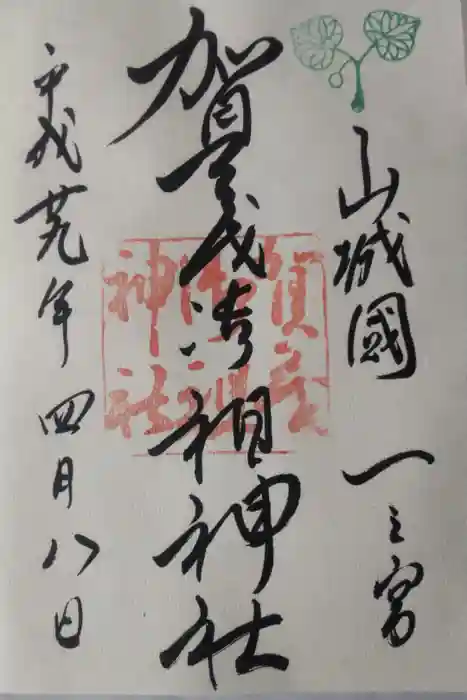 山城國 一之宮
賀茂御祖神社
平成廿九年四月八日
賀茂
御祖
神社